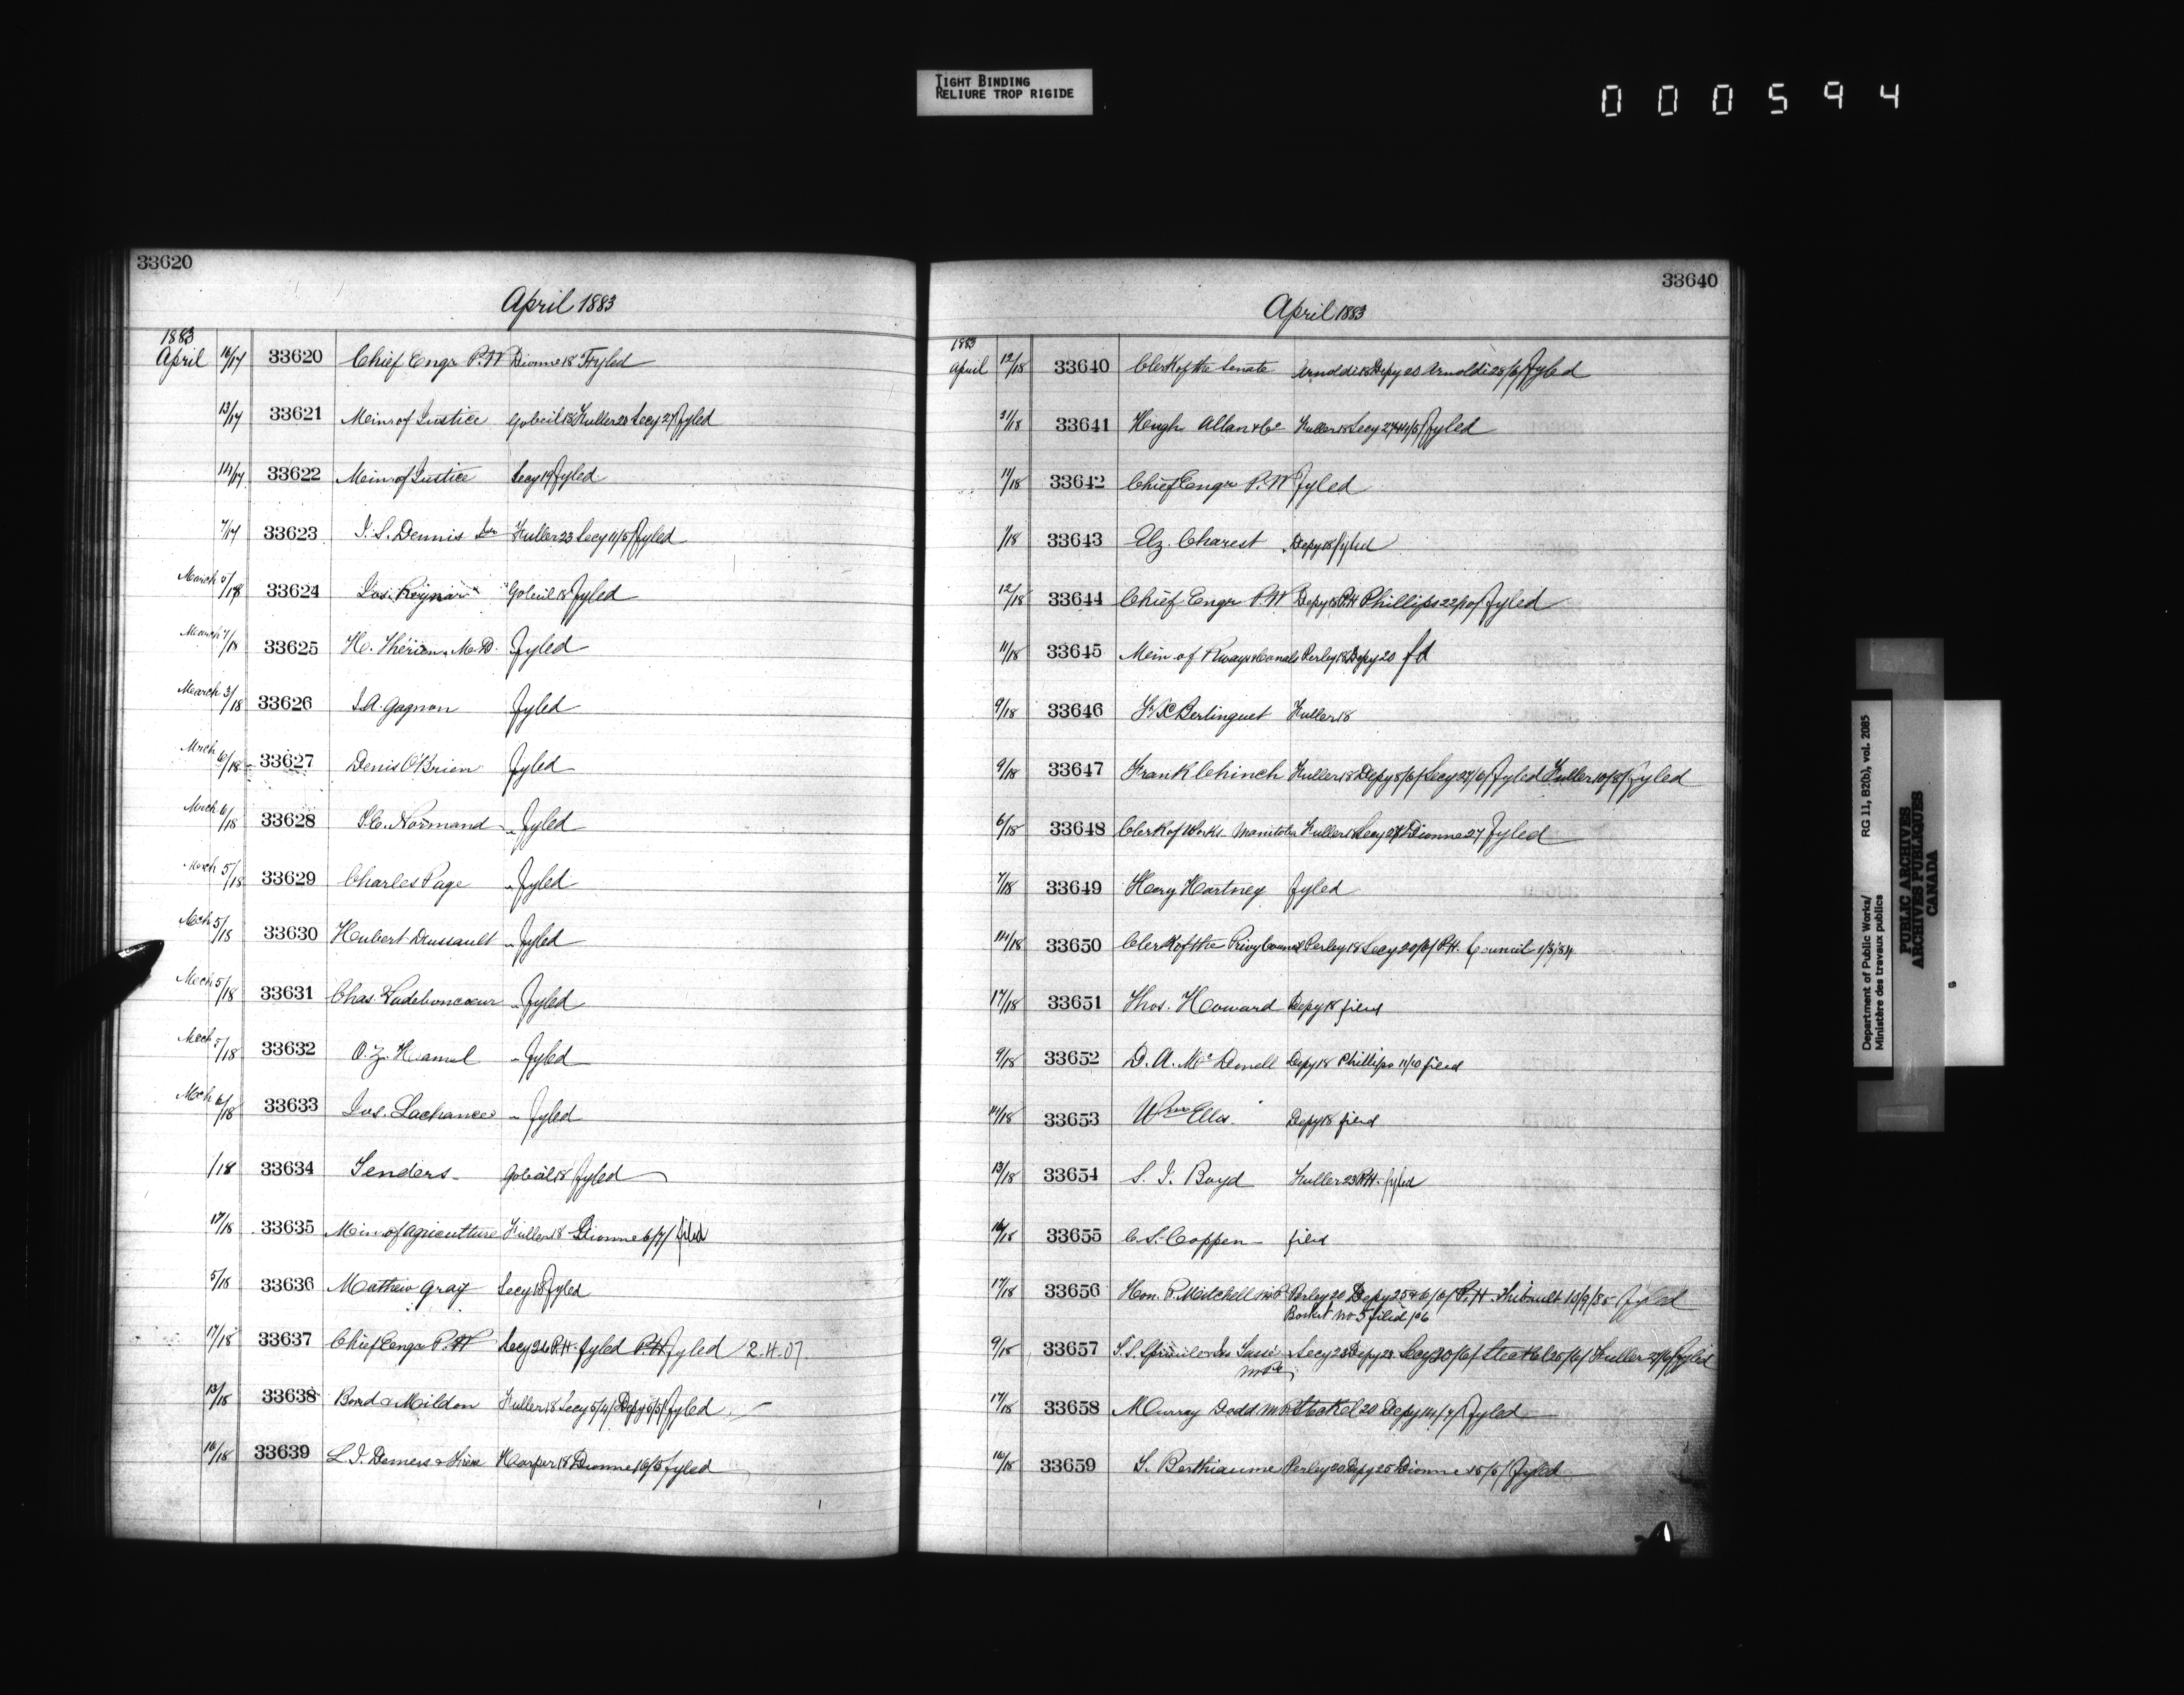 TIGHT BINDING
RELIURE TROP RIGIDE
000594
33620
April 1883
1883
April 16/17 33620 Chief Engr P.W Dionne 18 Fyled
13/17 33621 Minr of Justice Gobeil 18 Fuller 20 Secy 27/ Fyled
14/17 33622 Minr of Justice Secy 19 Fyled
7/17 33623 J. S. Dennis Fuller 23 Secy 11/5/ Fyled
March 5/18 33624 Jos. Gobeil 18 Fyled
March 7/18 33625 H. Thérien M.D. Fyled
March 3/18 33626 J. A. Gagnon Fyled
Mrch 6/18 33627 Denis O'Brien Fyled
Mrch 6/18 33628 Normand " Fyled
March 5/18 33629 Charles Page " Fyled
Mch 5/18 33630 Hubert Drussault " Fyled
Mch 5/18 33631 Chas. Ladeboncoeur " Fyled
Mch 5/18 33632 O. Z. Hamel " Fyled
Mch 6/18 33633 Jos. Lachance " Fyled
/18 33634 Tenders Gobeil 18 Fyled
17/18 33635 Min of Agriculture Fuller 18 Dionne 6/7/ filed
5/18 33636 Mathew Gray Secy 18 Fyled
17/18 33637 Chief Engr P.W Secy 26 P.H. Fyled P.H Fyled 2.H.07.
13/18 33638 Bond & Mildon Fuller 18 Secy 5/4/ Depy 5/5/ Fyled
16/18 33639 L. J. Demers & Frère Harper 18 Dionne 16/5 Fyled
33640
April 1883
1883
April 12/18 33640 Clerk of the Senate Arnoldi 18 Depy 20 Arnoldi 28/6/ Fyled
11/18 33641 Hugh Allan & Co Fuller 18 Secy Fyled
11/18 33642 Chief Engr P.W Fyled
/18 33643 Elz. Charest Depy 18 Fyled
12/18 33644 Chief Engr P.W Depy 18 P.H Phillips 22/10/ Fyled
11/18 33645 Min of Rways & Canals Perley 18 Depy 20 fd
9/18 33646 F. X. Berlinguet Fuller 18
9/18 33647 Frank Chinch Fuller 18 Depy 8/6/ Secy 27/6/ Fyled Fuller 10/8/ Fyled
6/18 33648 Clerk of Works Manitoba Fuller 18 Secy Dionne 27 Fyled
7/18 33649 Hary Hartney Fyled
14/18 33650 Clerk of the Privy Council Perley 18 Secy 20/6/ P.H. Council 1/3/84
17/18 33651 Thos. Howard Depy 18 filed
9/18 33652 D. A. McDonell Depy 18 Phillips 11/10 filed
14/18 33653 Wm Ellis Depy 18 filed
13/18 33654 S. J. Boyd Fuller 23 P.H. fyled
16/18 33655 C. S. Coppen filed
17/18 33656 Hon. P. Mitchell M.P Perley 20 Depy 25 & 6/6/ P.H. Thibault 10/9/85 Fyled
Booket No 5 filed 106
9/18 33657 Secy 23 Depy 23 Secy 20/6/ Steckel 25/6/ Fuller 27/6 Fyled
17/18 33658 Murray Dodd M.P Steckel 20 Depy 14/7/ Fyled
16/18 33659 S. Berthiaume Perley 20 Depy 25 Dionne 15/6/ Fyled
Department of Public Works/ RG 11, B2(b), vol. 2085
Ministère des travaux publics
PUBLIC ARCHIVES
ARCHIVES PUBLIQUES
CANADA